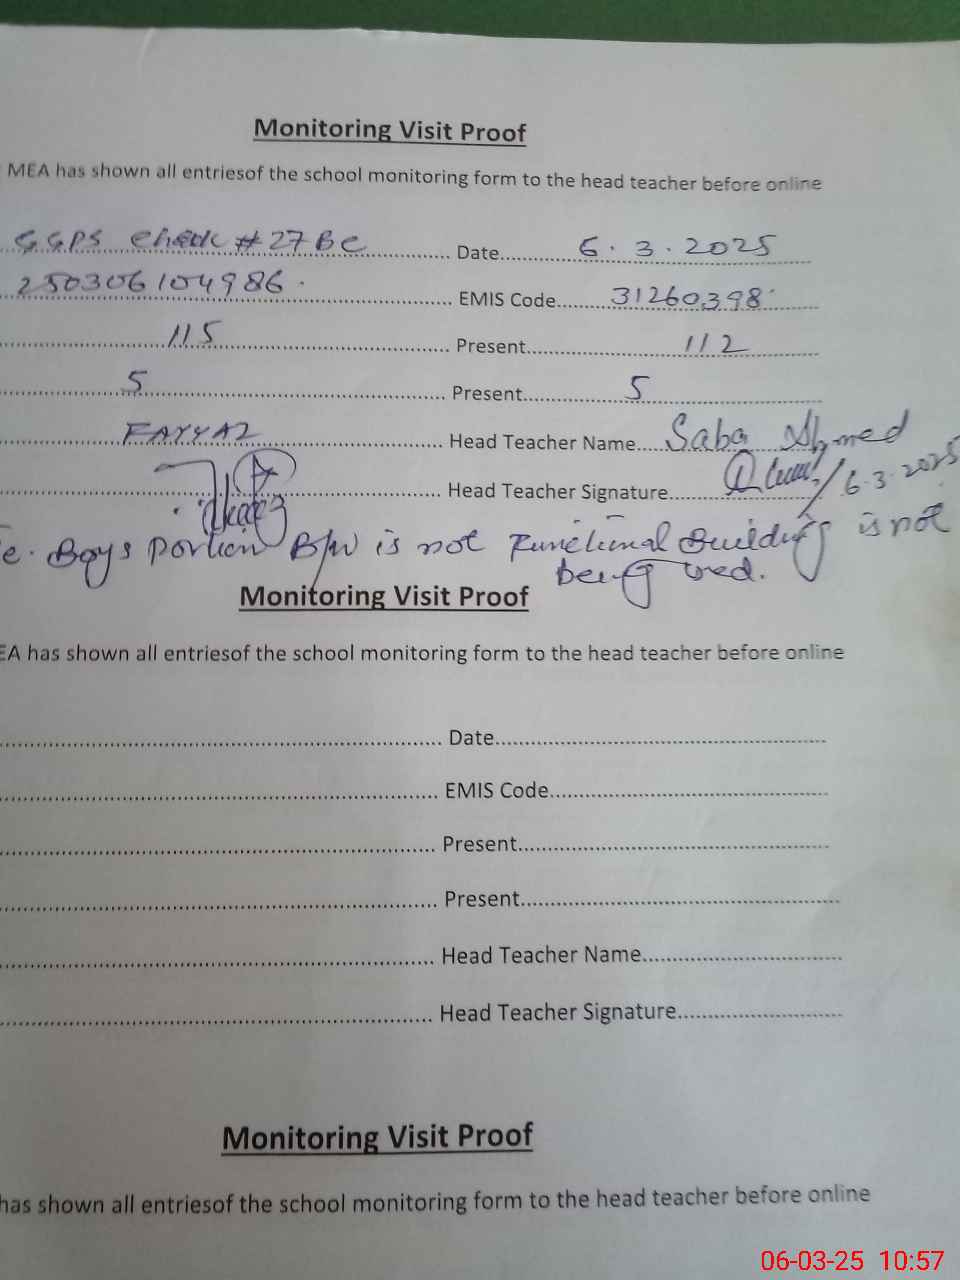 Monitoring Visit Proof
MEA has shown all entriesof the school monitoring form to the head teacher before online
G.G.P.S Chack # 27 BC Date 6.3.2025
250306104986. EMIS Code 31260398
115 Present 112
5 Present 5
FAYYAZ Head Teacher Name Saba Ahmed
Head Teacher Signature 6.3.2025
e. Boys portion B/W is not Functional Building is not
being used.
Monitoring Visit Proof
EA has shown all entriesof the school monitoring form to the head teacher before online
Date
EMIS Code
Present
Present
Head Teacher Name
Head Teacher Signature
Monitoring Visit Proof
has shown all entriesof the school monitoring form to the head teacher before online
06-03-25 10:57